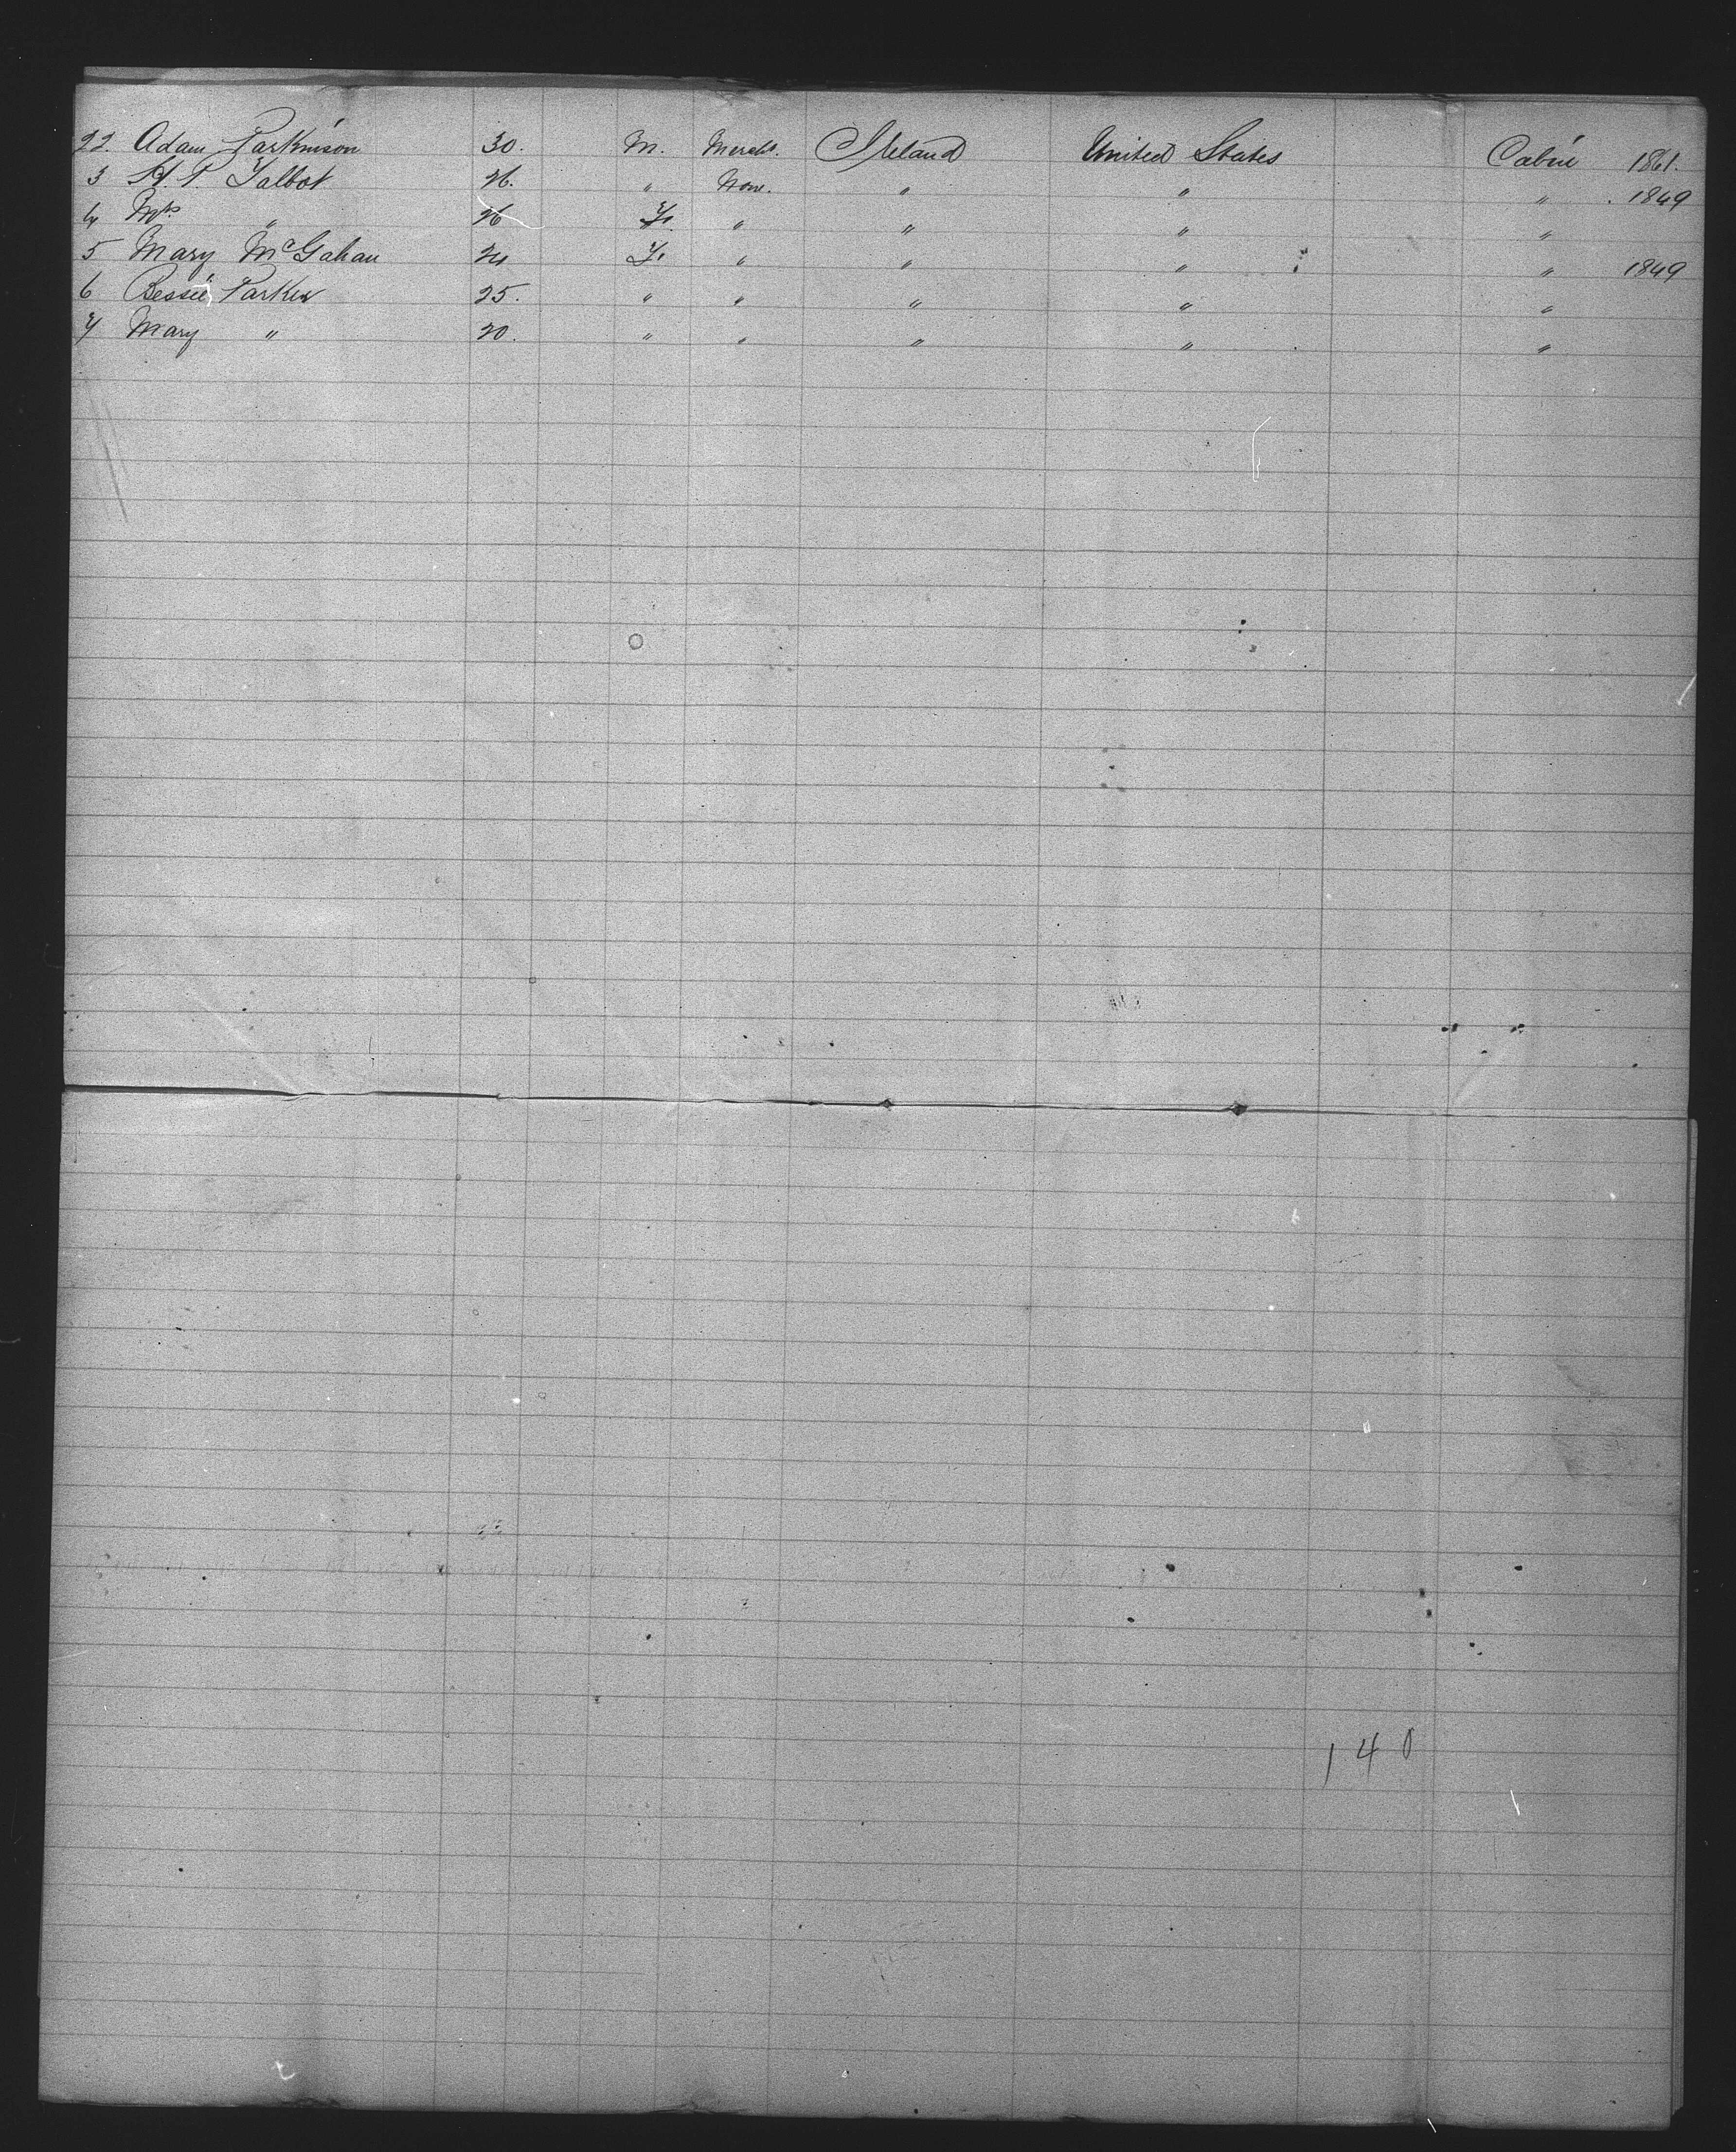 22. Adam Parkinson 30. M. Mercht. Ireland United States Cabin 1861.
3 H. P. Talbot 26. " None. " " " 1849
4 Mrs " 26 F. " " " "
5 Mary McGahan 24 F. " " " " 1849
6 Bessie Parker 25. " " " " "
7 Mary " 20. " " " " "
140